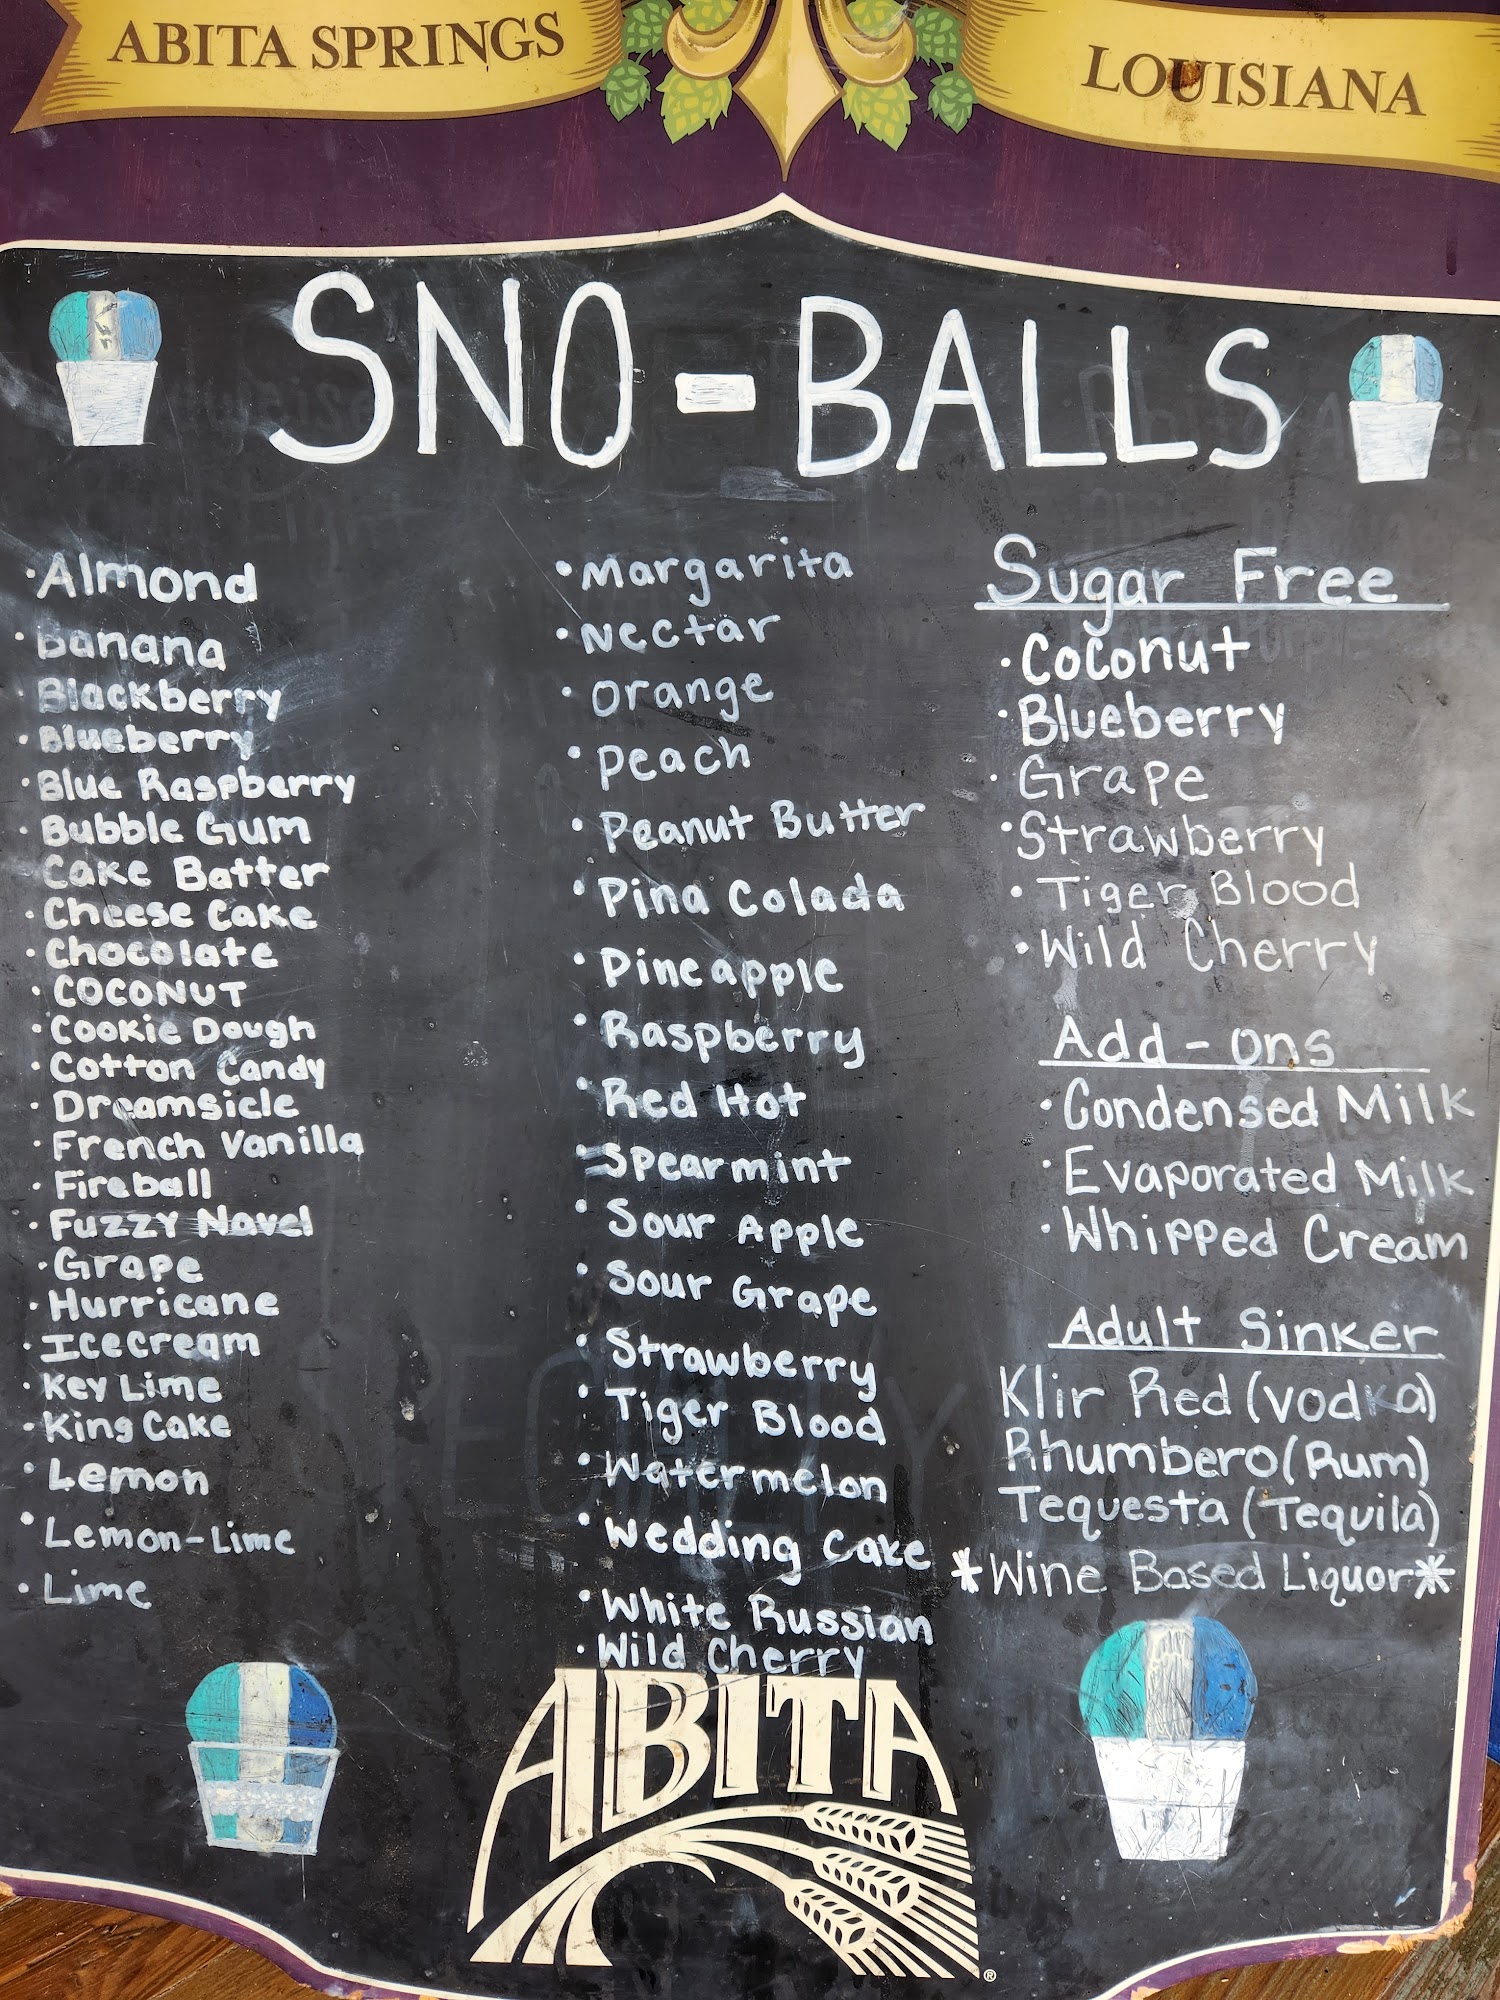 ABITA SPRINGS
LOUISIANA
SNO-BALLS
·Almond
·Banana
·Blackberry
·Blueberry
·Blue Raspberry
·Bubble Gum
·Cake Batter
·Cheese Cake
·Chocolate
·COCONUT
·Cookie Dough
·Cotton Candy
·Dreamsicle
·French Vanilla
·Fireball
·Fuzzy Navel
·Grape
·Hurricane
·Icecream
·Key Lime
·King Cake
·Lemon
·Lemon-Lime
·Lime
·Margarita
·Nectar
·Orange
·Peach
·Peanut Butter
·Pina Colada
·Pineapple
·Raspberry
·Red Hot
·Spearmint
·Sour Apple
·Sour Grape
·Strawberry
·Tiger Blood
·Watermelon
·Wedding Cake
·White Russian
·Wild Cherry
Sugar Free
·Coconut
·Blueberry
·Grape
·Strawberry
·Tiger Blood
·Wild Cherry
Add-ons
·Condensed Milk
·Evaporated Milk
·Whipped Cream
Adult Sinker
Klir Red (vodka)
Rhumbero (Rum)
Tequesta (Tequila)
*Wine Based Liquor*
ABITA
®